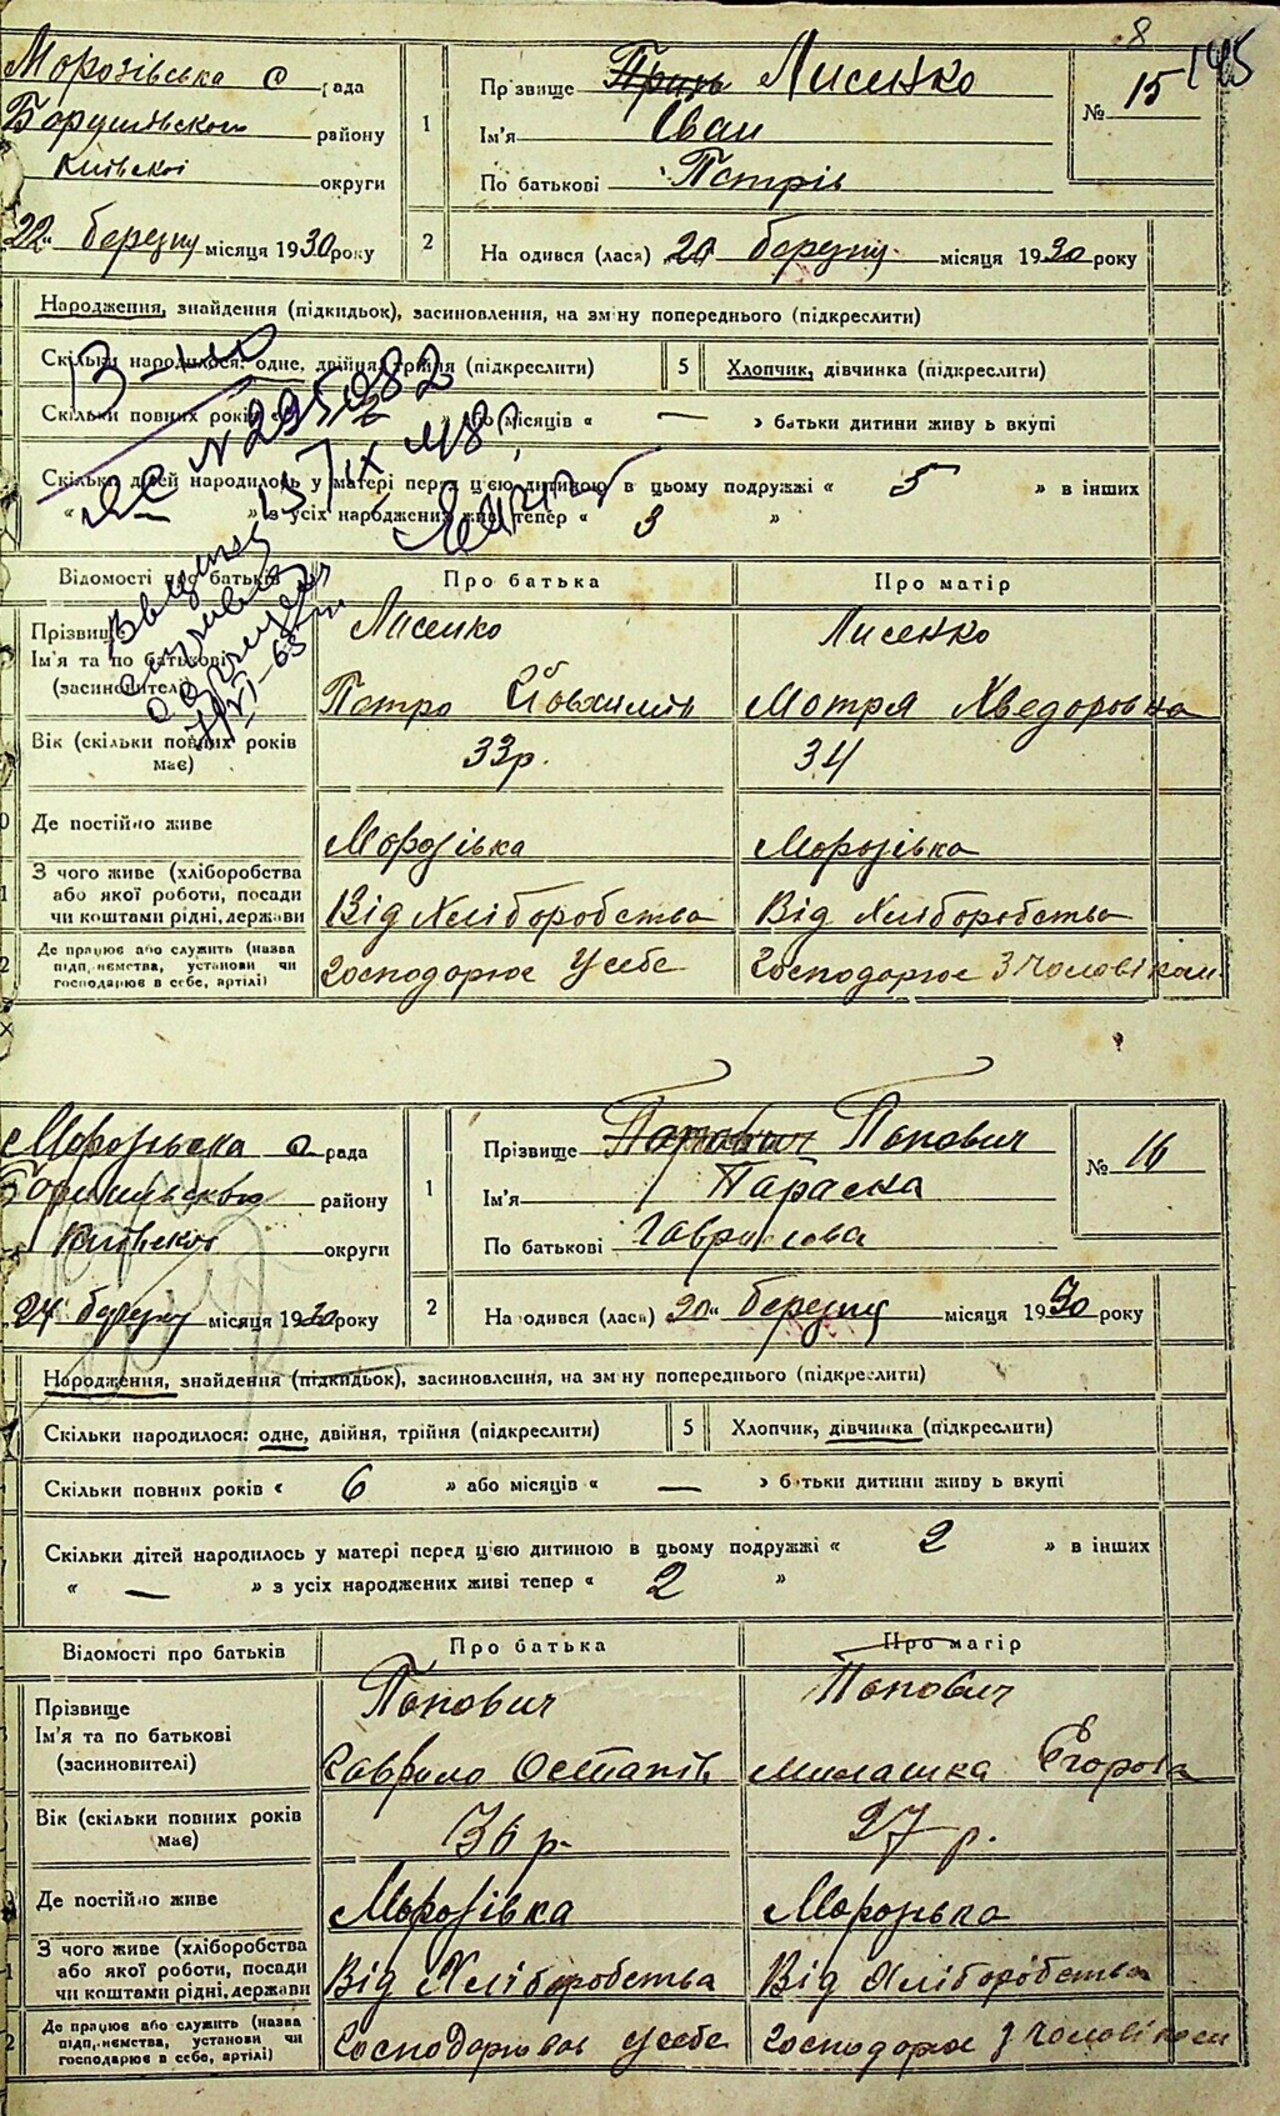 8
145
Морозівська с рада
Баришівського району
Київської округи
22 березня місяця 1930 року
1
Прізвище Лисенко
Ім'я Іван
По батькові Петрів
№ 15
2
На одився (лася) 20 березня місяця 1930 року
Народження, знайдення (підкидьок), засиновлення, на зм ну попереднього (підкреслити)
Скільки народилося: одне, двійня, трійня (підкреслити)
5
Хлопчик, дівчинка (підкреслити)
Скільки повних років « » або місяців « — » батьки дитини живу ь вкупі
Скільки дітей народилось у матері перед ц'єю дитиною в цьому подружжі « 5 » в інших
« — » з усіх народжених живі тепер « 3 »
№ 295282
Відомості про батьків
Про батька
Про матір
Прізвище
Ім'я та по батькові
(засиновителі)
Лисенко
Петро Йовхимів
Лисенко
Мотря Хведоровна
Вік (скільки повних років має)
33р.
34
Де постійно живе
Морозівка
Морозівка
З чого живе (хліборобства
або якої роботи, посади
чи коштами рідні, держави
Від Хліборобства
Від Хліборобства
Де працює або служить (назва
підп,иємства, установи чи
господарює в себе, артілі)
господорює у себе
Господорює з чоловіком
Морозівська с рада
району
Київської округи
24 березня місяця 1930 року
1
Прізвище Попович Попович
Ім'я Параска
По батькові Гаврилова
№ 16
2
На одився (лася) 20 березня місяця 1930 року
Народження, знайдення (підкидьок), засиновлення, на зм ну попереднього (підкреслити)
Скільки народилося: одне, двійня, трійня (підкреслити)
5
Хлопчик, дівчинка (підкреслити)
Скільки повних років « 6 » або місяців « — » батьки дитини живу ь вкупі
Скільки дітей народилось у матері перед ц'єю дитиною в цьому подружжі « 2 » в інших
« — » з усіх народжених живі тепер « 2 »
Відомості про батьків
Про батька
Про матір
Прізвище
Ім'я та по батькові
(засиновителі)
Попович
Гаврило Остапів
Попович
Милашка Єгорова
Вік (скільки повних років має)
36 р.
27 р.
Де постійно живе
Морозівка
Морозівка
З чого живе (хліборобства
або якої роботи, посади
чи коштами рідні, держави
Від Хліборобства
Від Хліборобства
Де працює або служить (назва
підп,иємства, установи чи
господарює в себе, артілі)
у себе
господорює з чоловіком